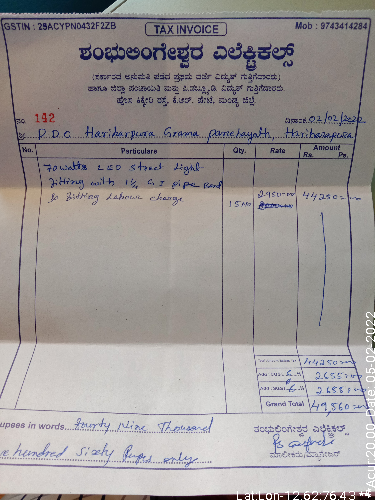 GSTIN : 29ACYPN0432F2ZB TAX INVOICE Mob : 9743414284
ಶಂಭುಲಿಂಗೇಶ್ವರ ಎಲೆಕ್ಟ್ರಿಕಲ್ಸ್
(ಸರ್ಕಾರದ ಅನುಮತಿ ಪಡೆದ ಪ್ರಥಮ ದರ್ಜೆ ವಿದ್ಯುತ್ ಗುತ್ತಿಗೆದಾರರು)
ಹಾಗೂ ಜಿಲ್ಲಾ ಪಂಚಾಯಿತಿ ಮತ್ತು ಪಿ.ಡಬ್ಲ್ಯೂ.ಡಿ. ವಿದ್ಯುತ್ ಗುತ್ತಿಗೆದಾರರು
ಕಿಕ್ಕೇರಿ ರಸ್ತೆ, ಕೆ.ಆರ್. ಪೇಟೆ, ಮಂಡ್ಯ ಜಿಲ್ಲೆ
ನಂ. 142 ದಿನಾಂಕ 02/02/2022
ಶ್ರೀ P.D.O Hariharpura Grama panchayath, Hariharapura
No. Particulars Qty. Rate Amount
Rs. Ps.
70 watts LED Street Light
fitting with 1½ G I pipe
& fitting Labour charge 15 No 2950 44250
44250
2655
2655
Grand Total 49,560
upees in words fourty Nine Thousand
hundred Sixty Rupees only
ಶಂಭುಲಿಂಗೇಶ್ವರ ಎಲೆಕ್ಟ್ರಿಕಲ್ಸ್
ಮಾಲೀಕರು/ಮ್ಯಾನೇಜರ್
Lat.Lon-12.62,76.43
Date_05-02-2022